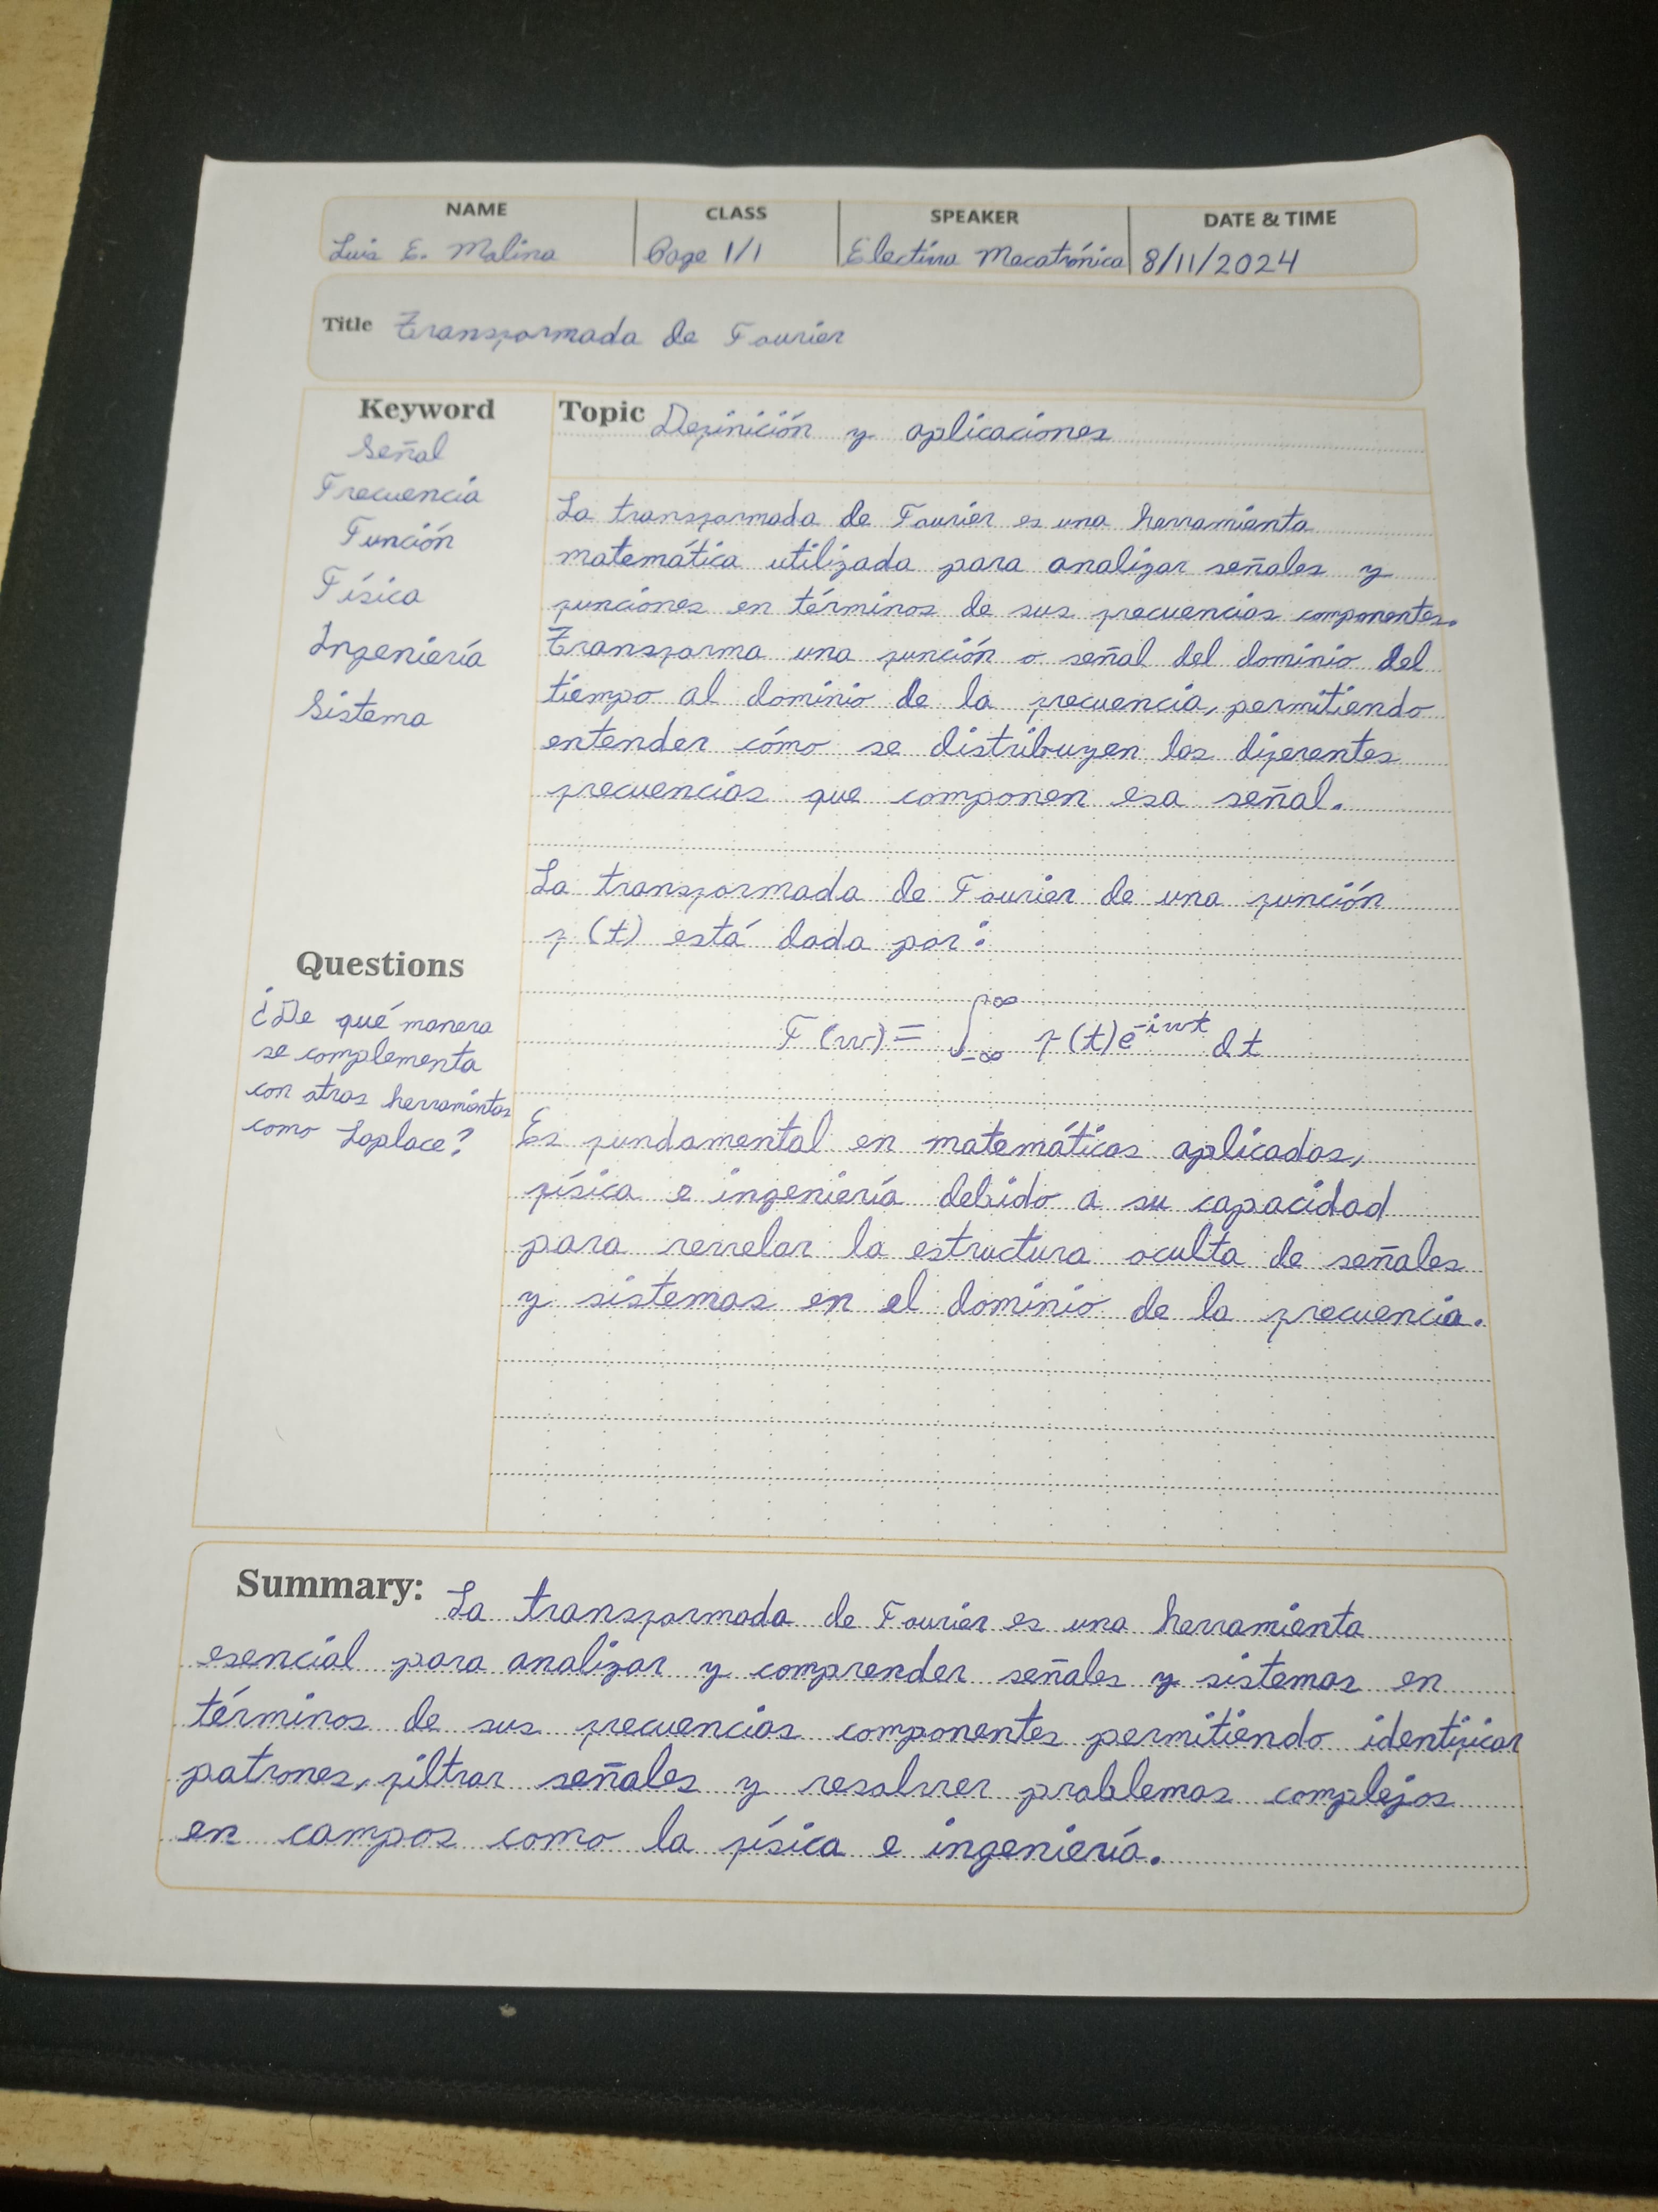 NAME CLASS SPEAKER DATE & TIME
Luis E. Molina Page 1/1 Electiva Mecatrónica 8/11/2024
Title Transformada de Fourier
Keyword
Señal
Frecuencia
Función
Física
Ingeniería
Sistema
Questions
¿De qué manera
se complementa
con otras herramientas
como Laplace?
Topic Definición y aplicaciones
La transformada de Fourier es una herramienta
matemática utilizada para analizar señales y
funciones en términos de sus frecuencias componentes.
Transforma una función o señal del dominio del
tiempo al dominio de la frecuencia, permitiendo
entender cómo se distribuyen las diferentes
frecuencias que componen esa señal.
La transformada de Fourier de una función
f(t) está dada por:
F(w) = ∫_{-∞}^{∞} f(t)e^{-iwt} dt
Es fundamental en matemáticas aplicadas,
física e ingeniería debido a su capacidad
para revelar la estructura oculta de señales
y sistemas en el dominio de la frecuencia.
Summary: La transformada de Fourier es una herramienta
esencial para analizar y comprender señales y sistemas en
términos de sus frecuencias componentes permitiendo identificar
patrones, filtrar señales y resolver problemas complejos
en campos como la física e ingeniería.